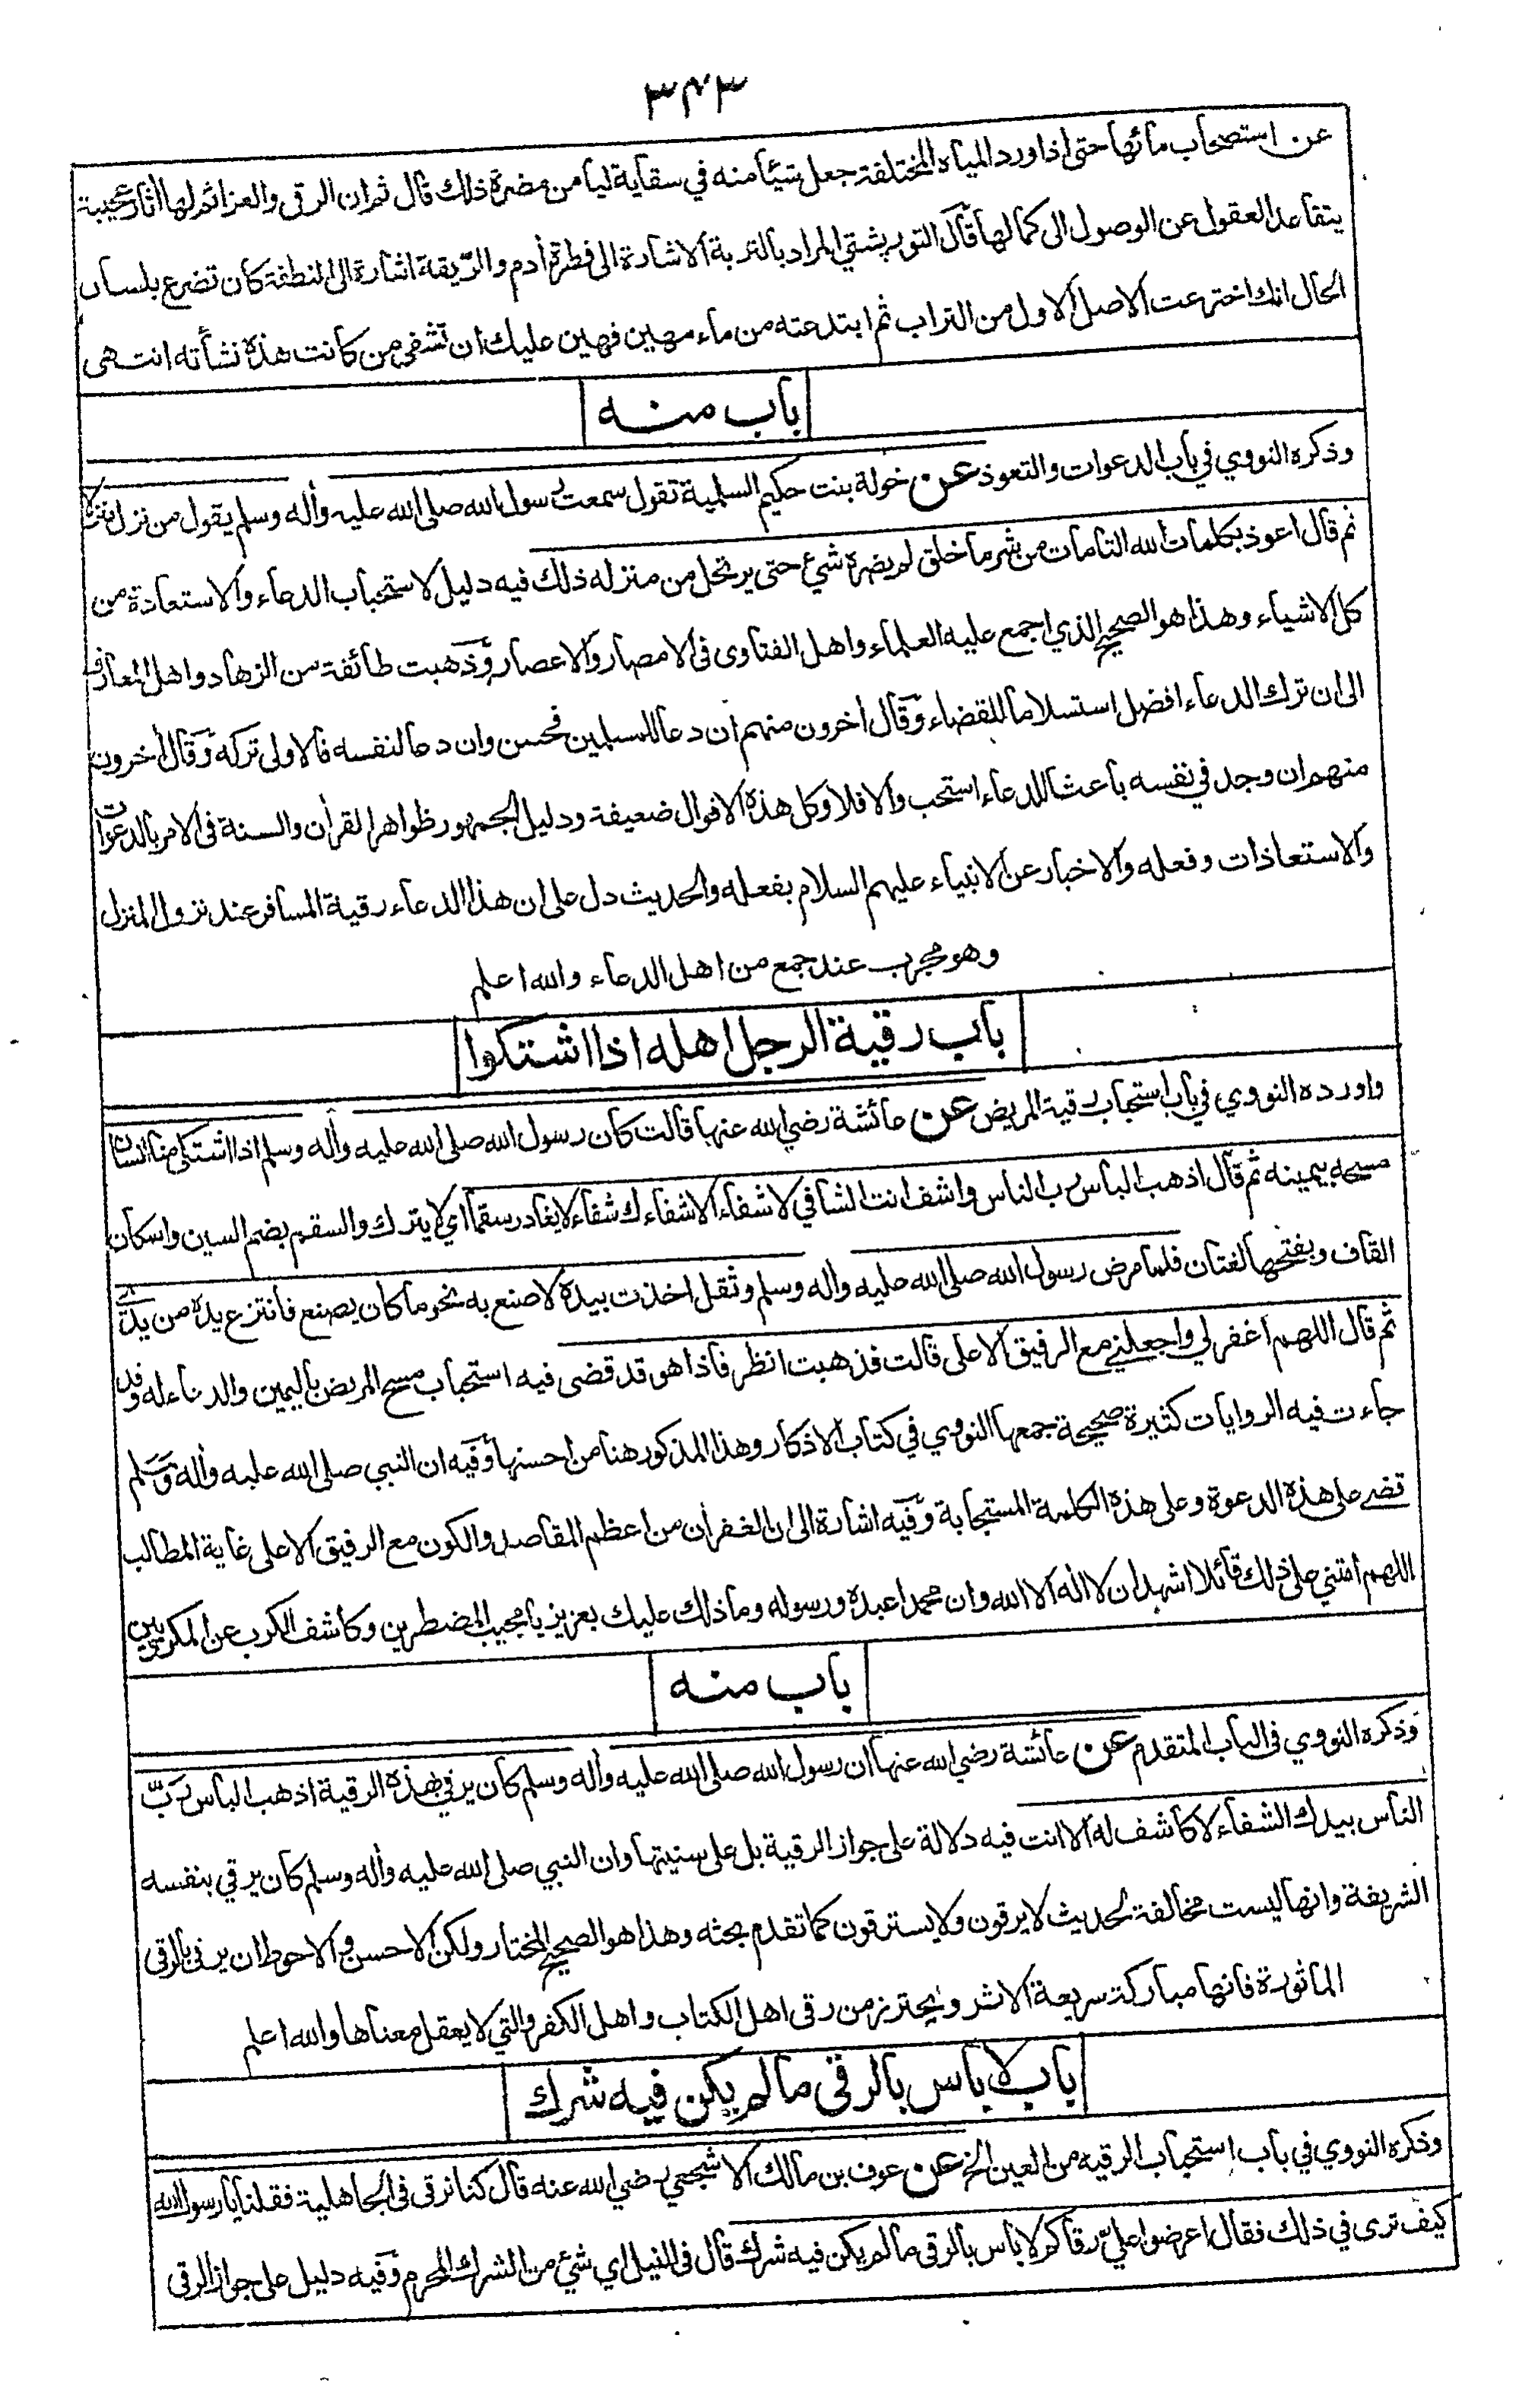 ٣٤٣
عن استصحاب مائها حتى اذا ورد المياه المختلفة جعل شيئا منه في سقاية ليامن مضرة ذلك قال ثم ان الرقى والعزائم لها أثار عجيبة
يتقاعد العقول عن الوصول الى كمالها قال التوربشتي المراد بالتربة الاشارة الى فطرة أدم والريقة اشارة الى النطفة كان تضرع بلسان
الحال انك اخترعت الاصل الاول من التراب ثم ابتدعته من ماء مهين فهين عليك ان تشفي من كانت هذه نشأته انتهى
باب منه
وذكره النووي في باب الدعوات والتعوذ عن خولة بنت حكيم السلمية تقول سمعت رسول الله صلى الله عليه وأله وسلم يقول من نزل منزلا
ثم قال اعوذ بكلمات الله التامات من شر ما خلق لم يضره شيء حتى يرتحل من منزله ذلك فيه دليل لاستحباب الدعاء والاستعاذة من
كل الاشياء وهذا هو الصحيح الذي اجمع عليه العلماء واهل الفتاوى في الامصار والاعصار وذهبت طائفة من الزهاد واهل المعارف
الى ان ترك الدعاء افضل استسلاما للقضاء وقال أخرون منهم ان دعا للمسلمين فحسن وان دعا لنفسه فالاولى تركه وقال أخرون
منهم ان وجد في نفسه باعثا للدعاء استحب والا فلا وكل هذه الاقوال ضعيفة ودليل الجمهور ظواهر القرأن والسنة في الامر بالدعوات
والاستعاذات وفعله والاخبار عن الانبياء عليهم السلام بفعله والحديث دل على ان هذا الدعاء رقية المسافر عند نزول المنزل
وهو مجرب عند جمع من اهل الدعاء والله اعلم
باب رقية الرجل اهله اذا اشتكوا
واورده النووي في باب استحباب رقية المريض عن عائشة رضي الله عنها قالت كان رسول الله صلى الله عليه وأله وسلم اذا اشتكى منا انسان
مسحه بيمينه ثم قال اذهب الباس رب الناس واشف انت الشافي لا شفاء الا شفاءك شفاء لا يغادر سقما اي لا يترك والسقم بضم السين واسكان
القاف وبفتحها لغتان فلما مرض رسول الله صلى الله عليه وأله وسلم وثقل اخذت بيده لاصنع به نحو ما كان يصنع فانتزع يده من يدي
ثم قال اللهم اغفر لي واجعلني مع الرفيق الاعلى قالت فذهبت انظر فاذا هو قد قضى فيه استحباب مسح المريض باليمين والدعاء له وقد
جاءت فيه الروايات كثيرة صحيحة جمعها النووي في كتاب الاذكار وهذا المذكور هنا من احسنها وفيه ان النبي صلى الله عليه وأله وسلم
قضى على هذه الدعوة وعلى هذه الكلمة المستجابة وفيه اشارة الى ان الغفران من اعظم المقاصد والكون مع الرفيق الاعلى غاية المطالب
اللهم امتني على ذلك قائلا اشهد ان لا اله الا الله وان محمدا عبده ورسوله وما ذلك عليك بعزيز يا مجيب المضطرين وكاشف الكرب عن المكروبين
باب منه
وذكره النووي في الباب المتقدم عن عائشة رضي الله عنها ان رسول الله صلى الله عليه وأله وسلم كان يرقي بهذه الرقية اذهب الباس رب
الناس بيدك الشفاء لا كاشف له الا انت فيه دلالة على جواز الرقية بل على سنيتها وان النبي صلى الله عليه وأله وسلم كان يرقي بنفسه
الشريفة وانها ليست مخالفة لحديث لا يرقون ولا يسترقون كما تقدم بحثه وهذا هو الصحيح المختار ولكن الاحسن والاحوط ان يرقى بالرقى
الماثورة فانها مباركة سريعة الاثر ويحترز من رقى اهل الكتاب واهل الكفر والتي لا يعقل معناها والله اعلم
باب لا باس بالرقى ما لم يكن فيه شرك
وذكره النووي في باب استحباب الرقية من العين الخ عن عوف بن مالك الاشجعي رضي الله عنه قال كنا نرقي في الجاهلية فقلنا يا رسول الله
كيف ترى في ذلك فقال اعرضوا علي رقاكم لا باس بالرقى ما لم يكن فيه شرك قال في النيل اي شيء من الشرك المحرم وفيه دليل على جواز الرقى